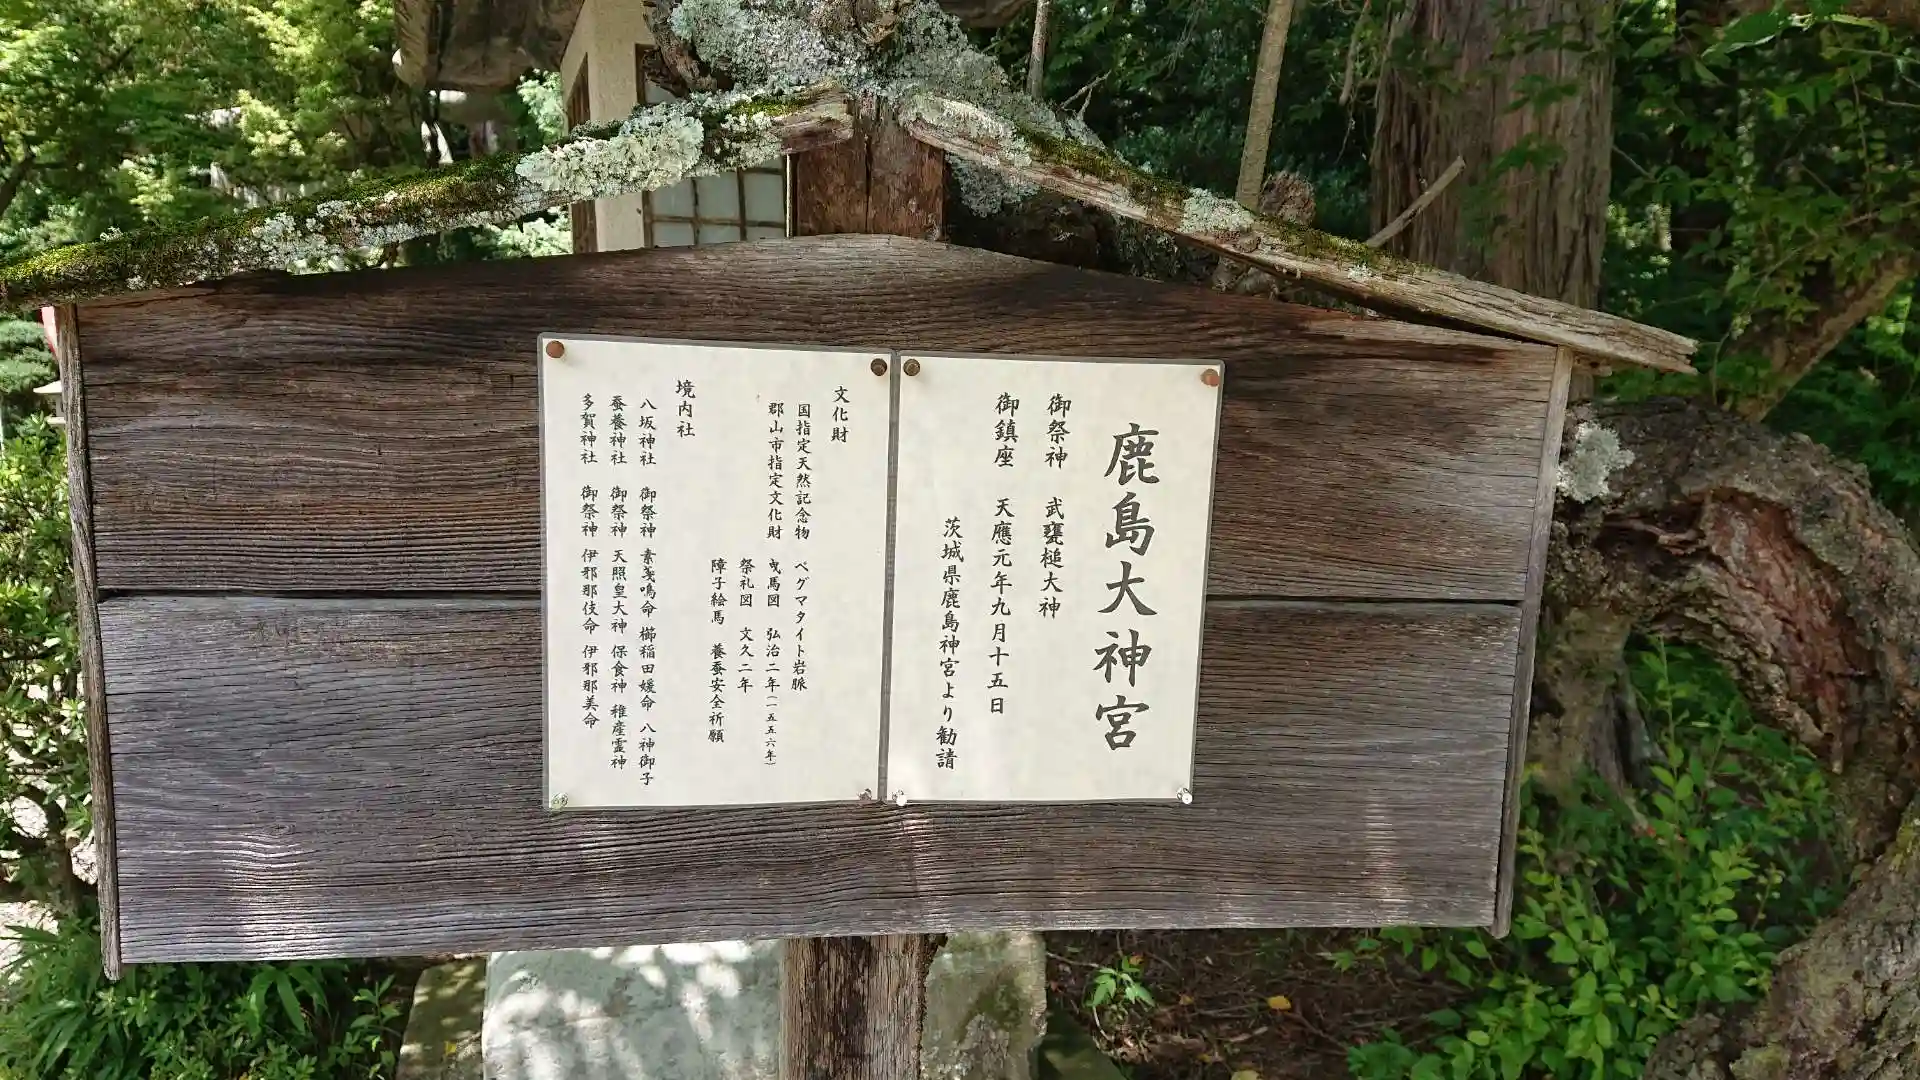 鹿島大神宮
御祭神 武甕槌大神
御鎮座 天應元年九月十五日
茨城県鹿島神宮より勧請
文化財
国指定天然記念物 ペグマタイト岩脈
郡山市指定文化財 曳馬図 弘治二年(一五五六年)
祭礼図 文久二年
障子絵馬 養蚕安全祈願
境内社
八坂神社 御祭神 素戔鳴命 櫛稲田媛命 八神御子
蚕養神社 御祭神 天照皇大神 保食神 稚産霊神
多賀神社 御祭神 伊邪那伎命 伊邪那美命